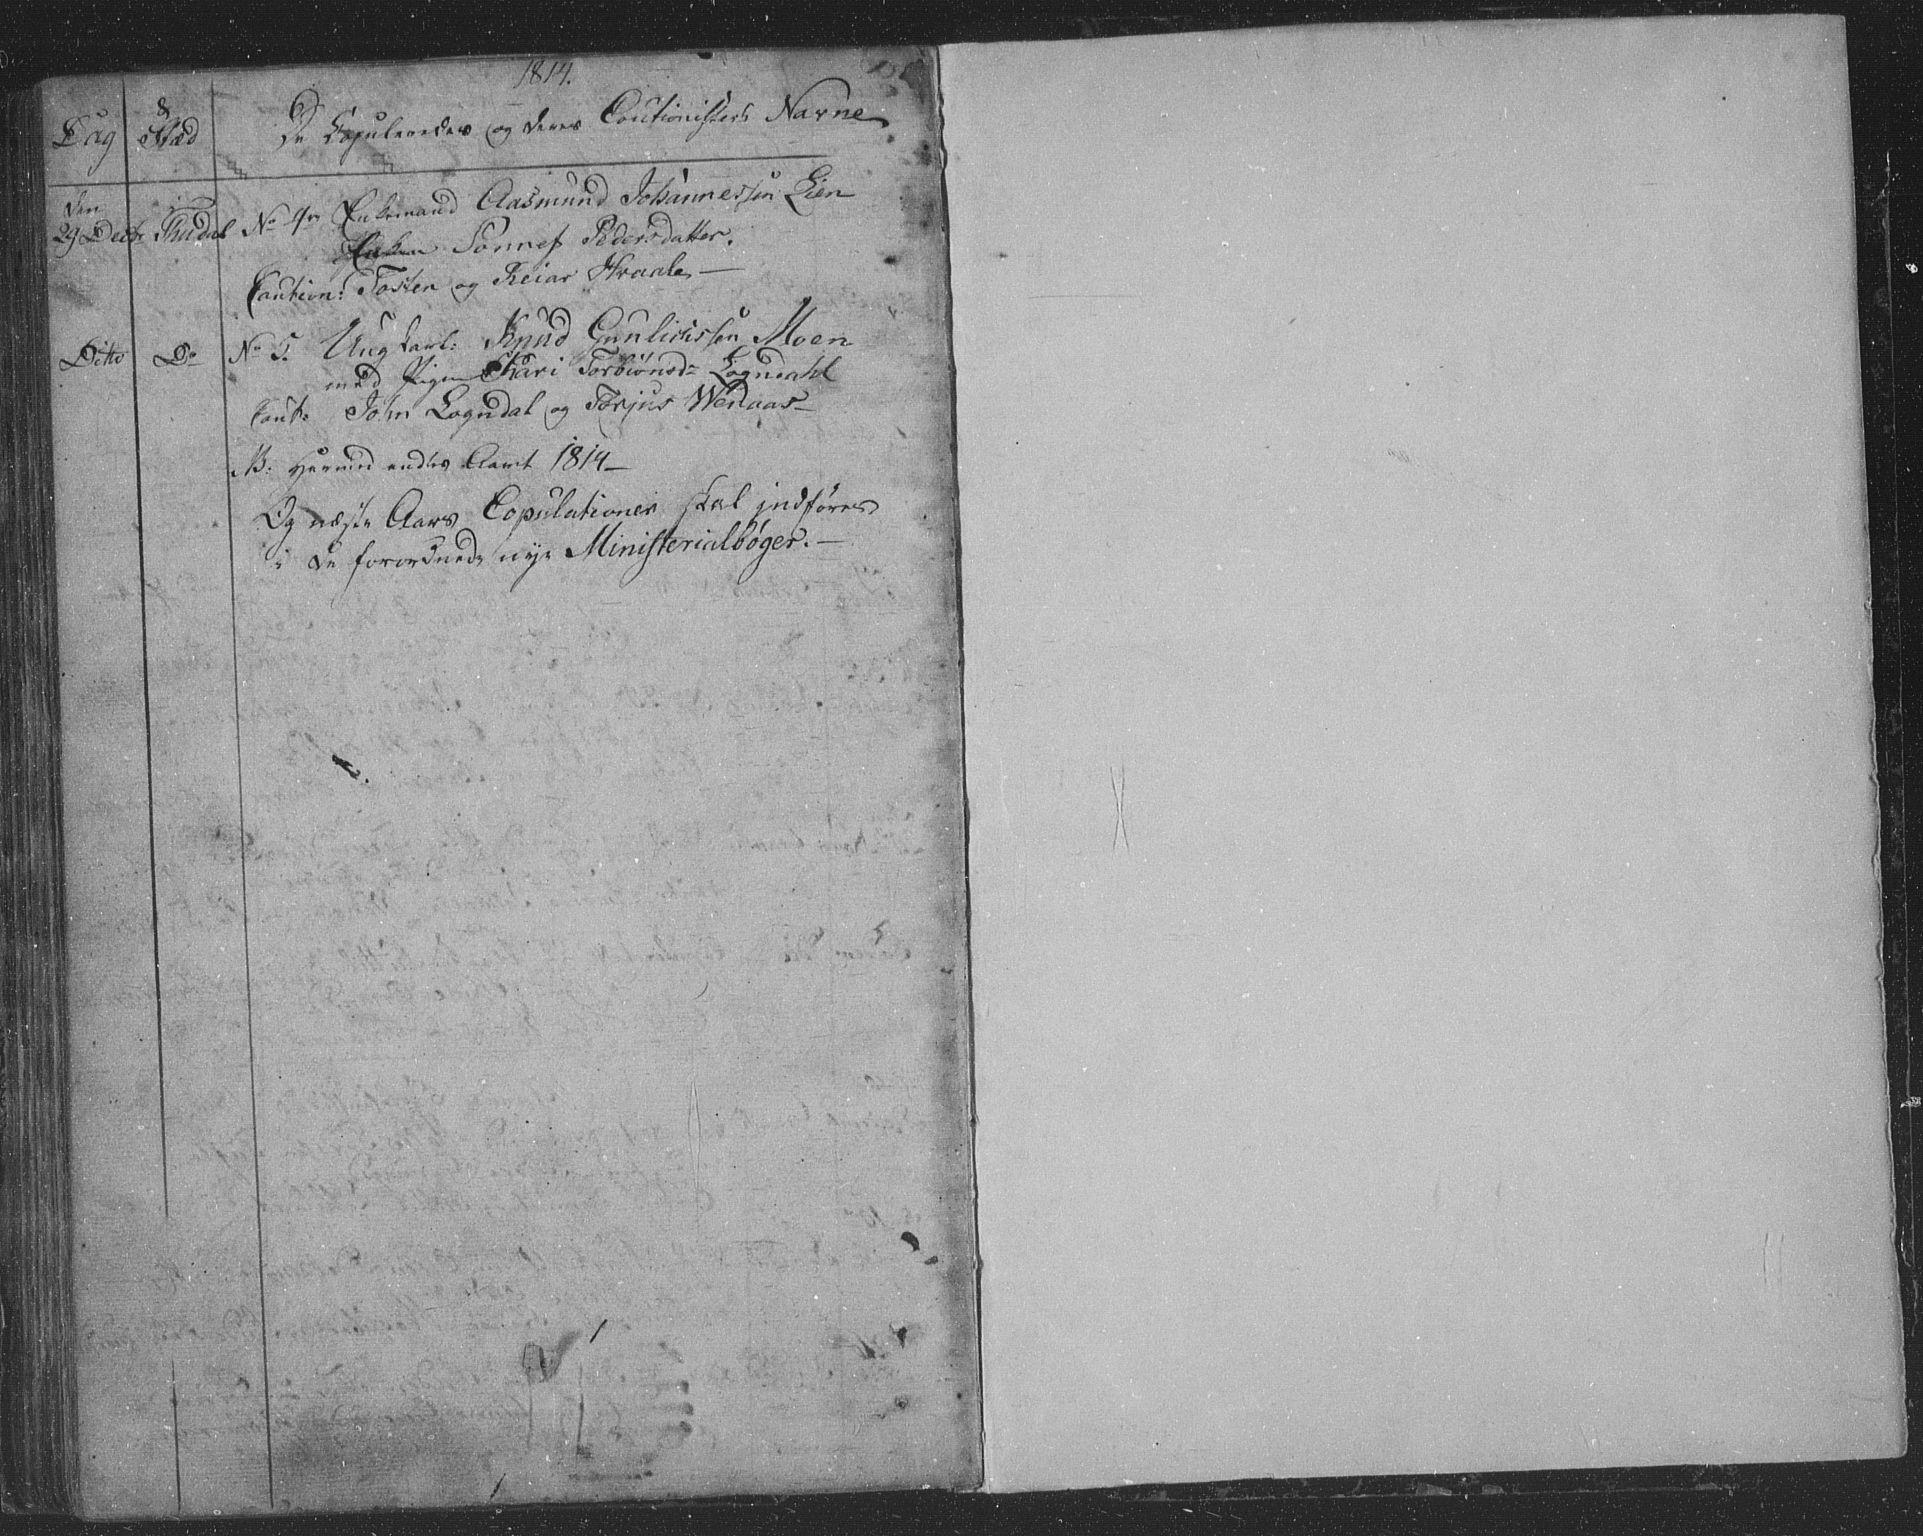 1814.
Dag & Stæd De Copuleredes og deres Cautionisters Navne
den
29 Decbr Thudal No 4. Enkemand Aasmund Johannessen Lien
Enken Sønnef Pedersdatter.
Caution: Tosten og Reiar Hraale —
Ditto Do No 5. Ung Karl: Knud Gunlichssen Moen
med Pigen Kari Torbiønsd: Logndahl
Caut: John Logndal og Torjus Wenaas —
NB: Hermed endes Aaret 1814 —
Og næste Aars Copulationer skal indføres
i de forordnede nye Ministerialbøger. —